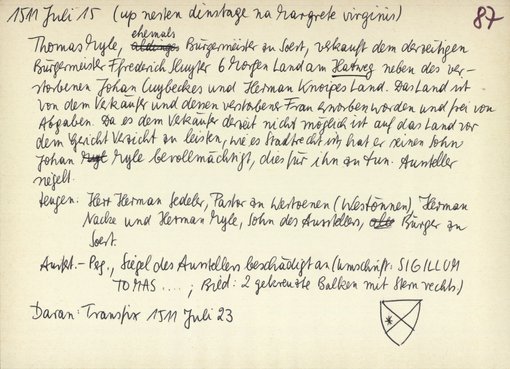 1511 Juli 15 (up nesten dinstage na Margrete virginis) 87
Thomas Myle, ehemals Bürgermeister zu Soest, verkauft dem derzeitigen
Bürgermeister Ffrederich Sluyter 6 Morgen Land am Hatweg neben des ver-
storbenen Johan Cuybeckes und Herman Knoipes Land. Das Land ist
von dem Verkäufer und dessen verstorbener Frau erworben worden und frei von
Abgaben. Da es dem Verkäufer derzeit nicht möglich ist auf das Land vor
dem Gericht Verzicht zu leisten, wie es Stadtrecht ist, hat er seinen Sohn
Johan Myle bevollmächtigt, dies für ihn zu tun. Aussteller
siegelt.
Zeugen: Herr Herman Sedeler, Pastor zu Westoenen (Westönnen), Herman
Nacke und Herman Myle, Sohn des Ausstellers, Bürger zu
Soest.
Ausf. - Perg., Siegel des Ausstellers beschädigt an (Umschrift: SIGILLUM
TOMAS ....; Bild: 2 gekreuzte Balken mit Stern rechts)
Daran: Transfix 1511 Juli 23